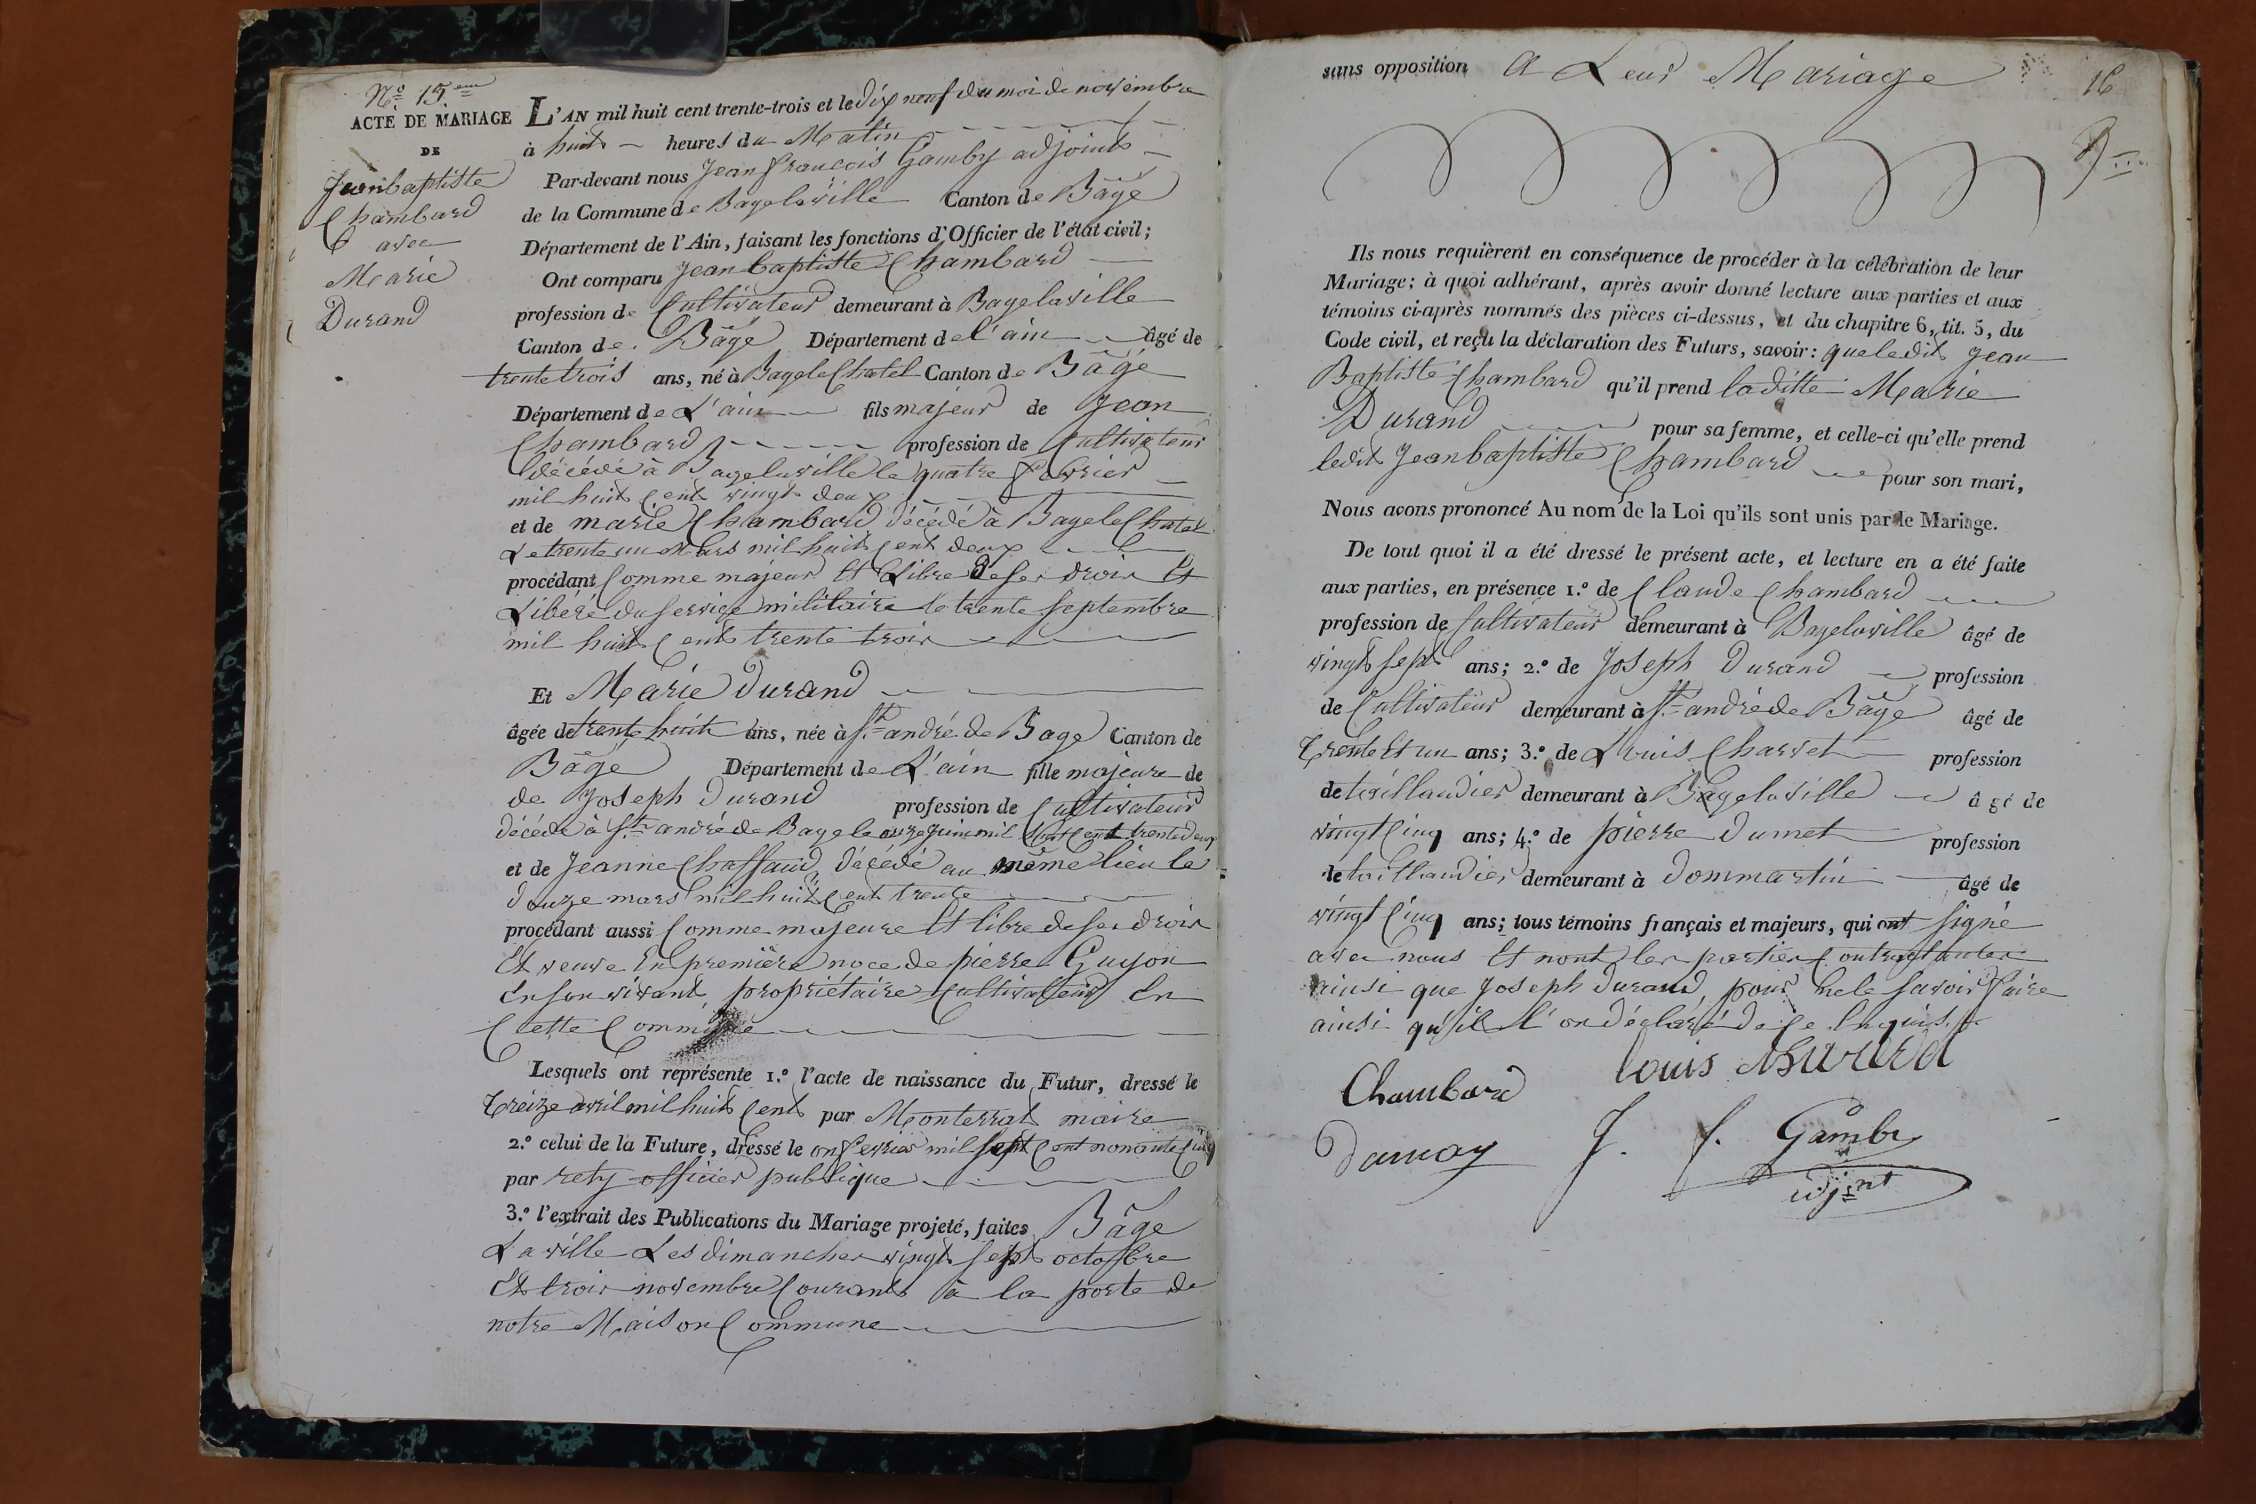 N.º 15.eme
ACTE DE MARIAGE
DE
Jeanbaptiste
Chambard
avec
Marie
Durand
L'AN mil huit cent trente-trois et le dix neuf du moi de novembre
à huit heures du Matin
Par-devant nous Jean francois Gamby adjoint
de la Commune de Bagelaville Canton de Bâgé
Département de l'Ain, faisant les fonctions d'Officier de l'état civil;
Ont comparu Jean baptiste Chambard
profession de Cultivateur demeurant à Bagelaville
Canton de Bâgé Département de l'ain âgé de
trente trois ans, né à Bagele Chatel Canton de Bâgé
Département de L'ain fils majeur de Jean
Chambard profession de Cultivateur
décédé à Bagelaville le quatre fevrier
mil huit Cent vingt deux
et de marie Chambard décédé à Bagele Chatel
Le trente un Mars mil huit Cent deux
procédant Comme majeur Et Libre de ses droir Et
Libéré du service militaire le trente septembre
mil huit Cent trente troir
Et Marie Durand
âgée de trente huit ans, née à St andré de Bage Canton de
Bâgé Département de L'ain fille majeure de
de Joseph Durand profession de Cultivateur
décédé à St andré de Bage le onze Juin mil huit Cent trente deux
et de Jeanne Chaffaud, décédé au même lieu le
douze mars mil huit Cent trente
procédant aussi Comme majeure Et libre de ses droir
Et veuve En première noce de pierre Guyon
En son vivant propriétaire Cultivateur En
Cette Commune
Lesquels ont représente 1.º l'acte de naissance du Futur, dressé le
Treize avril mil huit Cent par Monterrat maire
2.º celui de la Future, dressé le on fevrier mil sept Cent nonante Cinq
par rety officier publique
3.º l'extrait des Publications du Mariage projeté, faites Bâge
La ville Les dimancher vingt sept octobre
Et troir novembre Courant à la porte de
notre Maison Commune
sans opposition A Leur Mariage
16
Ils nous requièrent en conséquence de procéder à la célébration de leur
Mariage; à quoi adhérant, après avoir donné lecture aux parties et aux
témoins ci-après nommés des pièces ci-dessus, et du chapitre 6, tit. 5, du
Code civil, et reçu la déclaration des Futurs, savoir: que ledit Jean
Baptiste Chambard qu'il prend laditte Marie
Durand pour sa femme, et celle-ci qu'elle prend
ledit Jeanbaptiste Chambard pour son mari,
Nous avons prononcé Au nom de la Loi qu'ils sont unis par le Mariage.
De tout quoi il a été dressé le présent acte, et lecture en a été faite
aux parties, en présence 1.º de Claude Chambard
profession de Cultivateur demeurant à Bagelaville âgé de
vingt sept ans; 2.º de Joseph Durand profession
de Cultivateur demeurant à St andré de Bâgé âgé de
Trente Et un ans; 3.º de Louis Charvet profession
de taillandier demeurant à Bagelaville âgé de
vingt Cinq ans; 4.º de pierre Dumet profession
de taillandier demeurant à Dommartin âgé de
vingt Cinq ans; tous témoins français et majeurs, qui ont signé
avec nous Et nont ler partier Contractanter
ainsi que Joseph Durand pour ne le savoir faire
ainsi qu'il l'on déclaré de ce Enquis
Chambard Louis
J. f. Gamby
adjnt